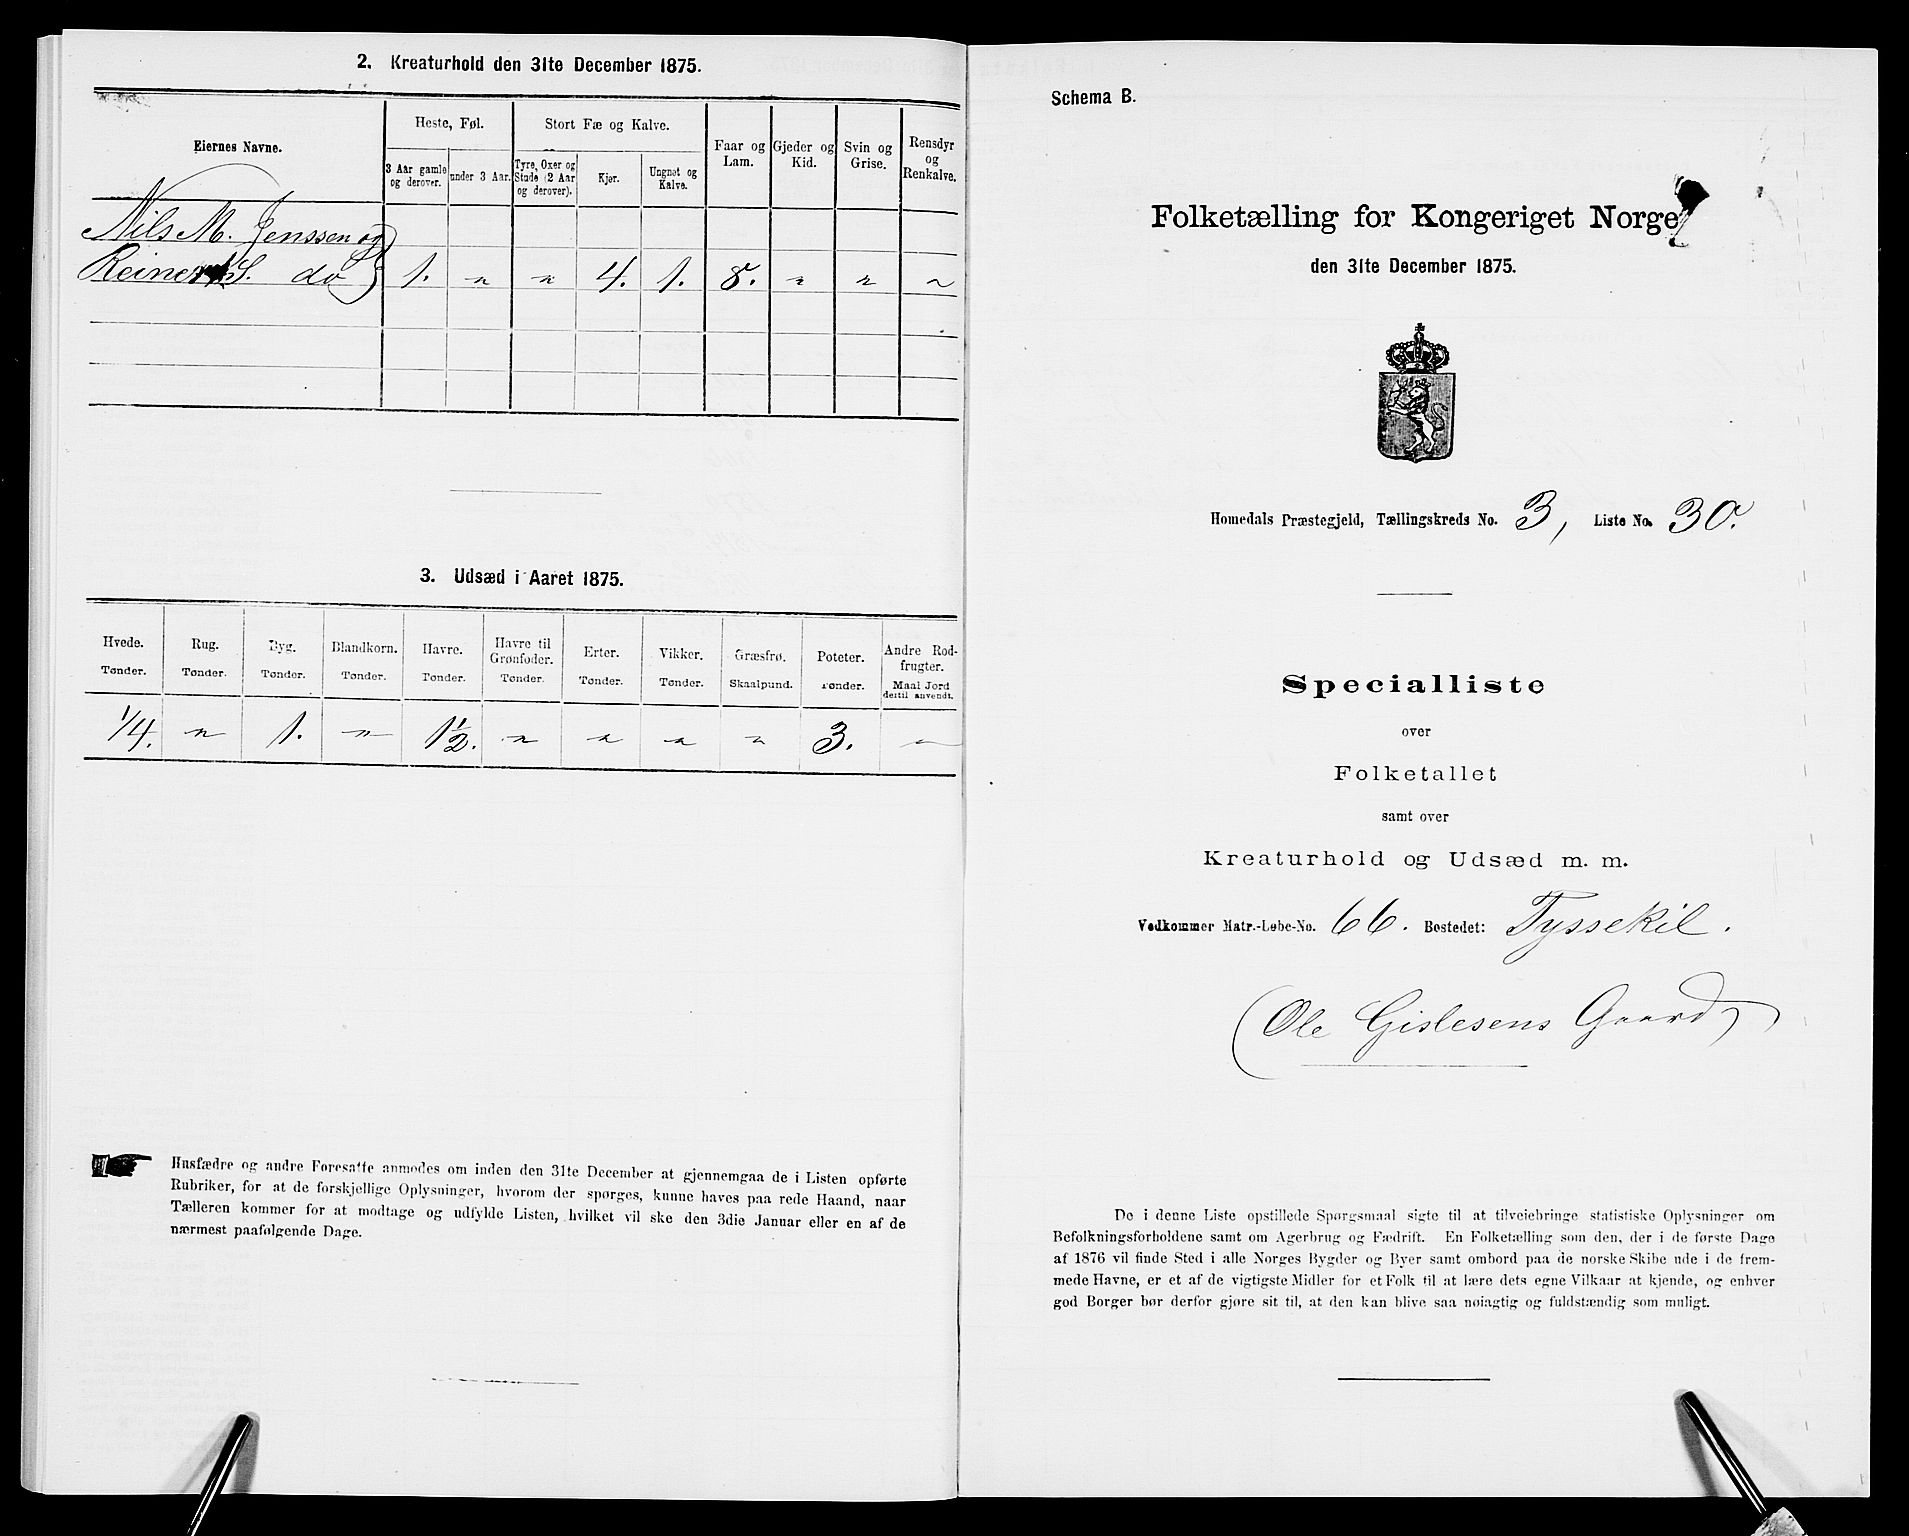 2. Kreaturhold den 31te December 1875.
Eiernes Navne.
Heste, Føl.
Stort Fæ og Kalve.
Faar og Lam.
Gjeder og Kid.
Svin og Grise.
Rensdyr og Renkalve.
3 Aar gamle og derover.
under 3 Aar.
Tyre, Oxer og Stude (2 Aar og derover).
Kjør.
Ungnøt og Kalve.
Nils M. Jenssen og
Reinert S. do 1. " " 4. 1. 8. " " "
3. Udsæd i Aaret 1875.
Hvede. Tønder.
Rug. Tønder.
Byg. Tønder.
Blandkorn. Tønder.
Havre. Tønder.
Havre til Grønfoder. Tønder.
Erter. Tønder.
Vikker. Tønder.
Græsfrø. Skaalpund.
Poteter. Tønder.
Andre Rodfrugter. Maal Jord dertil anvendt.
1/4. " 1. " 1 1/2. " " " " 3. "
Husfædre og andre Foresatte anmodes om inden den 31te December at gjennemgaa de i Listen opførte
Rubriker, for at de forskjellige Oplysninger, hvorom der spørges, kunne haves paa rede Haand, naar
Tælleren kommer for at modtage og udfylde Listen, hvilket vil ske den 3die Januar eller en af de
nærmest paafølgende Dage.
Schema B.
Folketælling for Kongeriget Norge
den 31te December 1875.
Homedals Præstegjeld, Tællingskreds No. 3, Liste No. 30.
Specialliste
over
Folketallet
samt over
Kreaturhold og Udsæd m. m.
Vedkommer Matr.-Løbe-No. 66. Bostedet: Tyssekil.
(Ole Gislesens Gaard)
De i denne Liste opstillede Spørgsmaal sigte til at tilveiebringe statistiske Oplysninger om
Befolkningsforholdene samt om Agerbrug og Fædrift. En Folketælling som den, der i de første Dage
af 1876 vil finde Sted i alle Norges Bygder og Byer samt ombord paa de norske Skibe ude i de frem-
mede Havne, er et af de vigtigste Midler for et Folk til at lære dets egne Vilkaar at kjende, og enhver
god Borger bør derfor gjøre sit til, at den kan blive saa nøiagtig og fuldstændig som muligt.